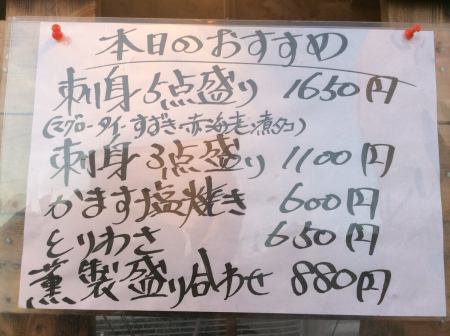 本日のおすすめ
刺身5点盛り 1650円
(マグロ・タイ・すずき・赤海老・煮タコ)
刺身3点盛り 1100円
かます塩焼き 600円
とりわさ 650円
薫製盛り合わせ 880円